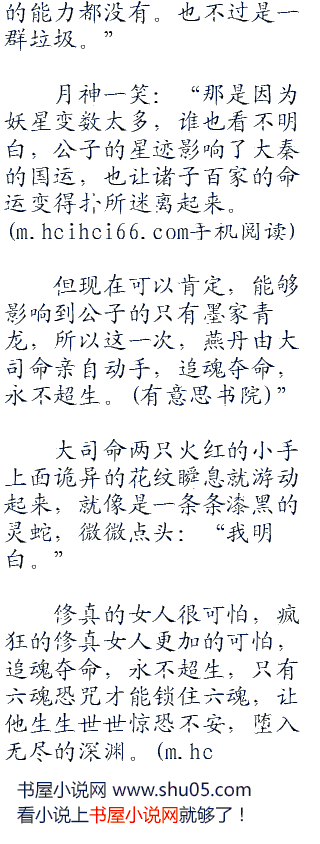 的能力都没有。也不过是一
群垃圾。”
月神一笑：“那是因为
妖星变数太多，谁也看不明
白，公子的星迹影响了大秦
的国运，也让诸子百家的命
运变得扑所迷离起来。
(m.hcihci66.com手机阅读)
但现在可以肯定，能够
影响到公子的只有墨家青
龙，所以这一次，燕丹由大
司命亲自动手，追魂夺命，
永不超生。(有意思书院)”
大司命两只火红的小手
上面诡异的花纹瞬息就游动
起来，就像是一条条漆黑的
灵蛇，微微点头：“我明
白。”
修真的女人很可怕，疯
狂的修真女人更加的可怕，
追魂夺命，永不超生，只有
六魂恐咒才能锁住六魂，让
他生生世世惊恐不安，堕入
无尽的深渊。(m.hc
书屋小说网 www.shu05.com
看小说上书屋小说网就够了！